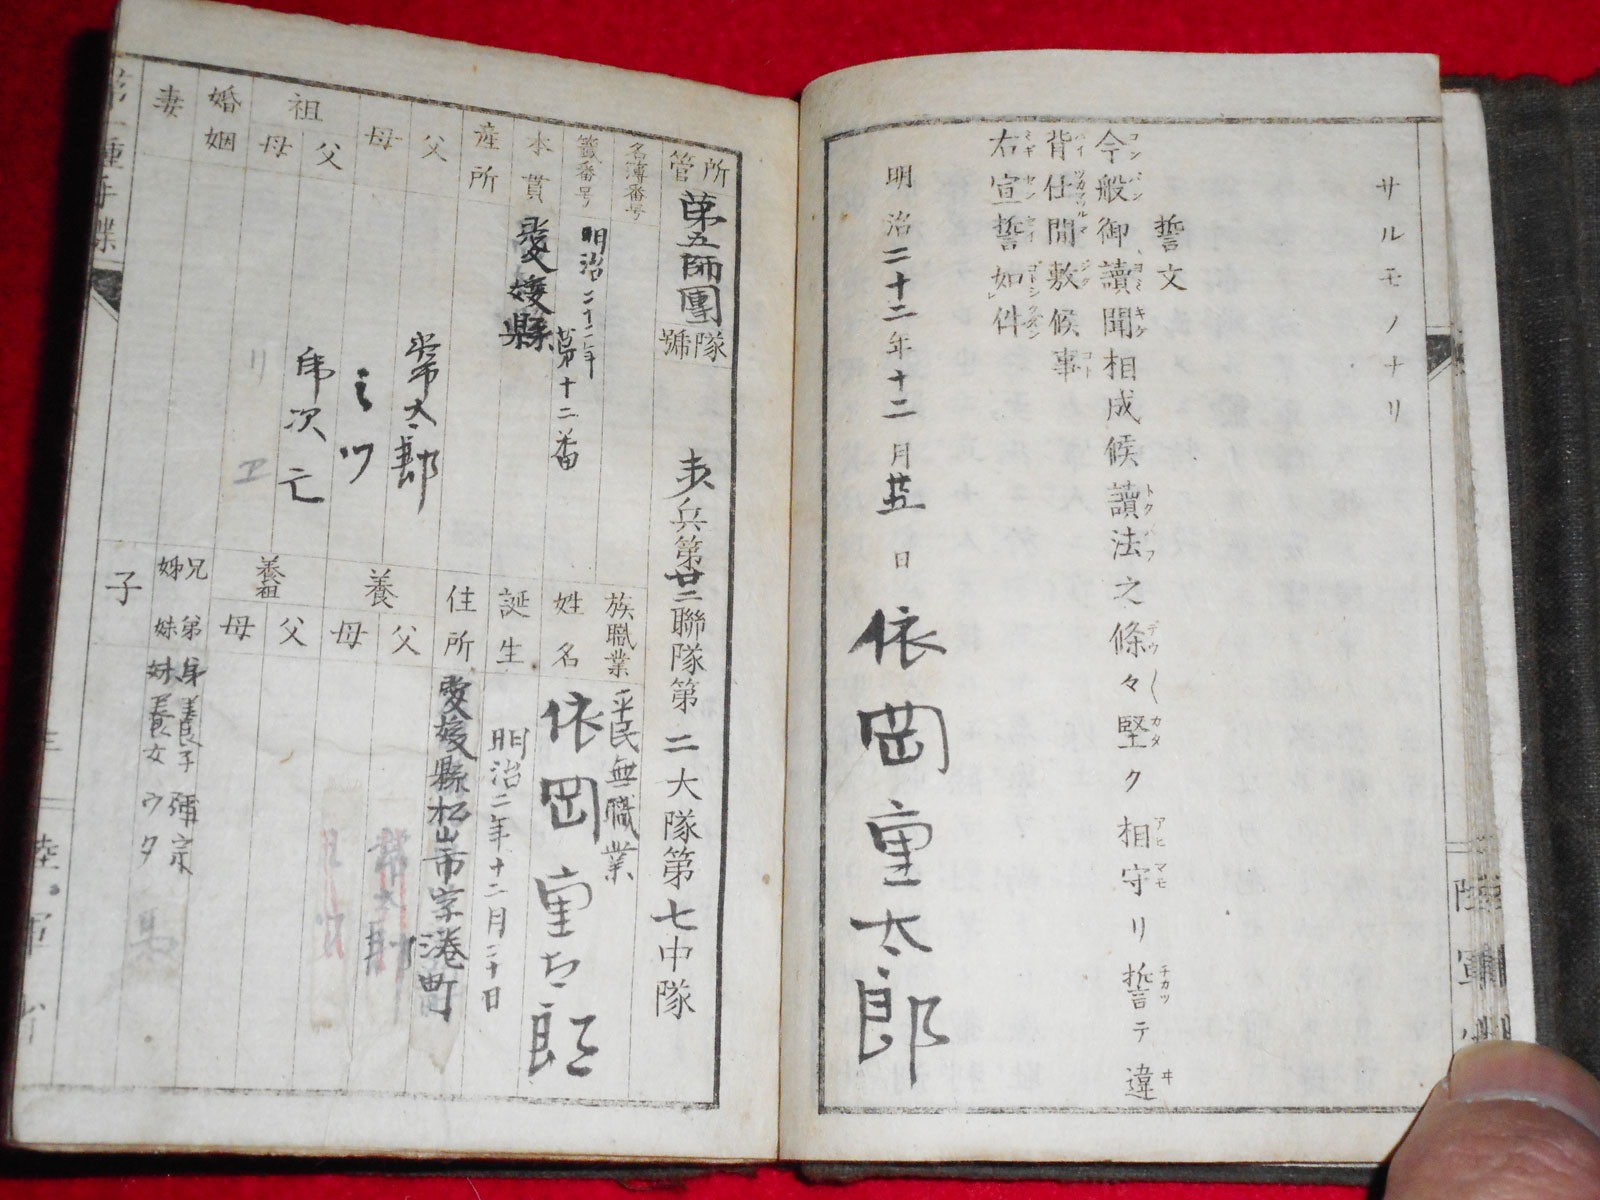 サルモノナリ
誓文
今般御讀聞相成候讀法之條々堅ク相守リ誓テ違
背仕間敷候事
右宣誓如件
明治二十二年十二月廿五日 依岡重太郎
所管 第五師團
隊號 歩兵第廿二聯隊第二大隊第七中隊
名簿番号
族職業 平民無職業
籤番号 明治二十二年第十二番
姓名 依岡重太郎
本貫 愛媛縣
誕生 明治二年十二月二十日
産所
住所 愛媛縣松山市字港町
父
母
養
父
母
祖
父
母
養祖
父
母
婚姻
妻
兄弟
姉妹
弟養子彌宗
妹養女ウタ
子
第一種手牒
三
陸軍省